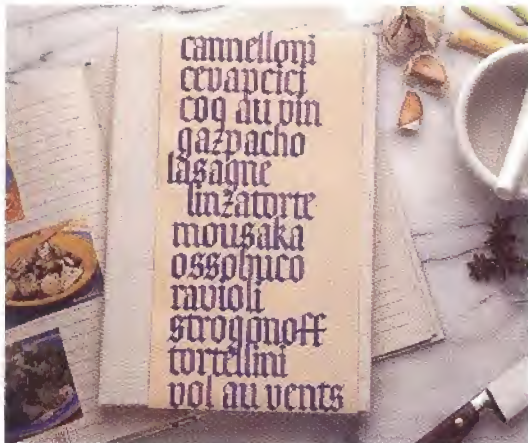 cannelloni
cevapcici
coq au vin
gazpacho
lasagne
linzatorte
mousaka
ossobuco
ravioli
strogonoff
tortellini
vol au vents